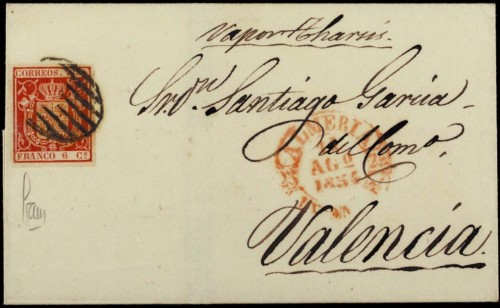 Vapor Tharsis.
CORREOS.
FRANCO 6 Cs
Sr. Dn Santiago Garcia
del Lomo.
ALMERIA
AGO
1854
Valencia.